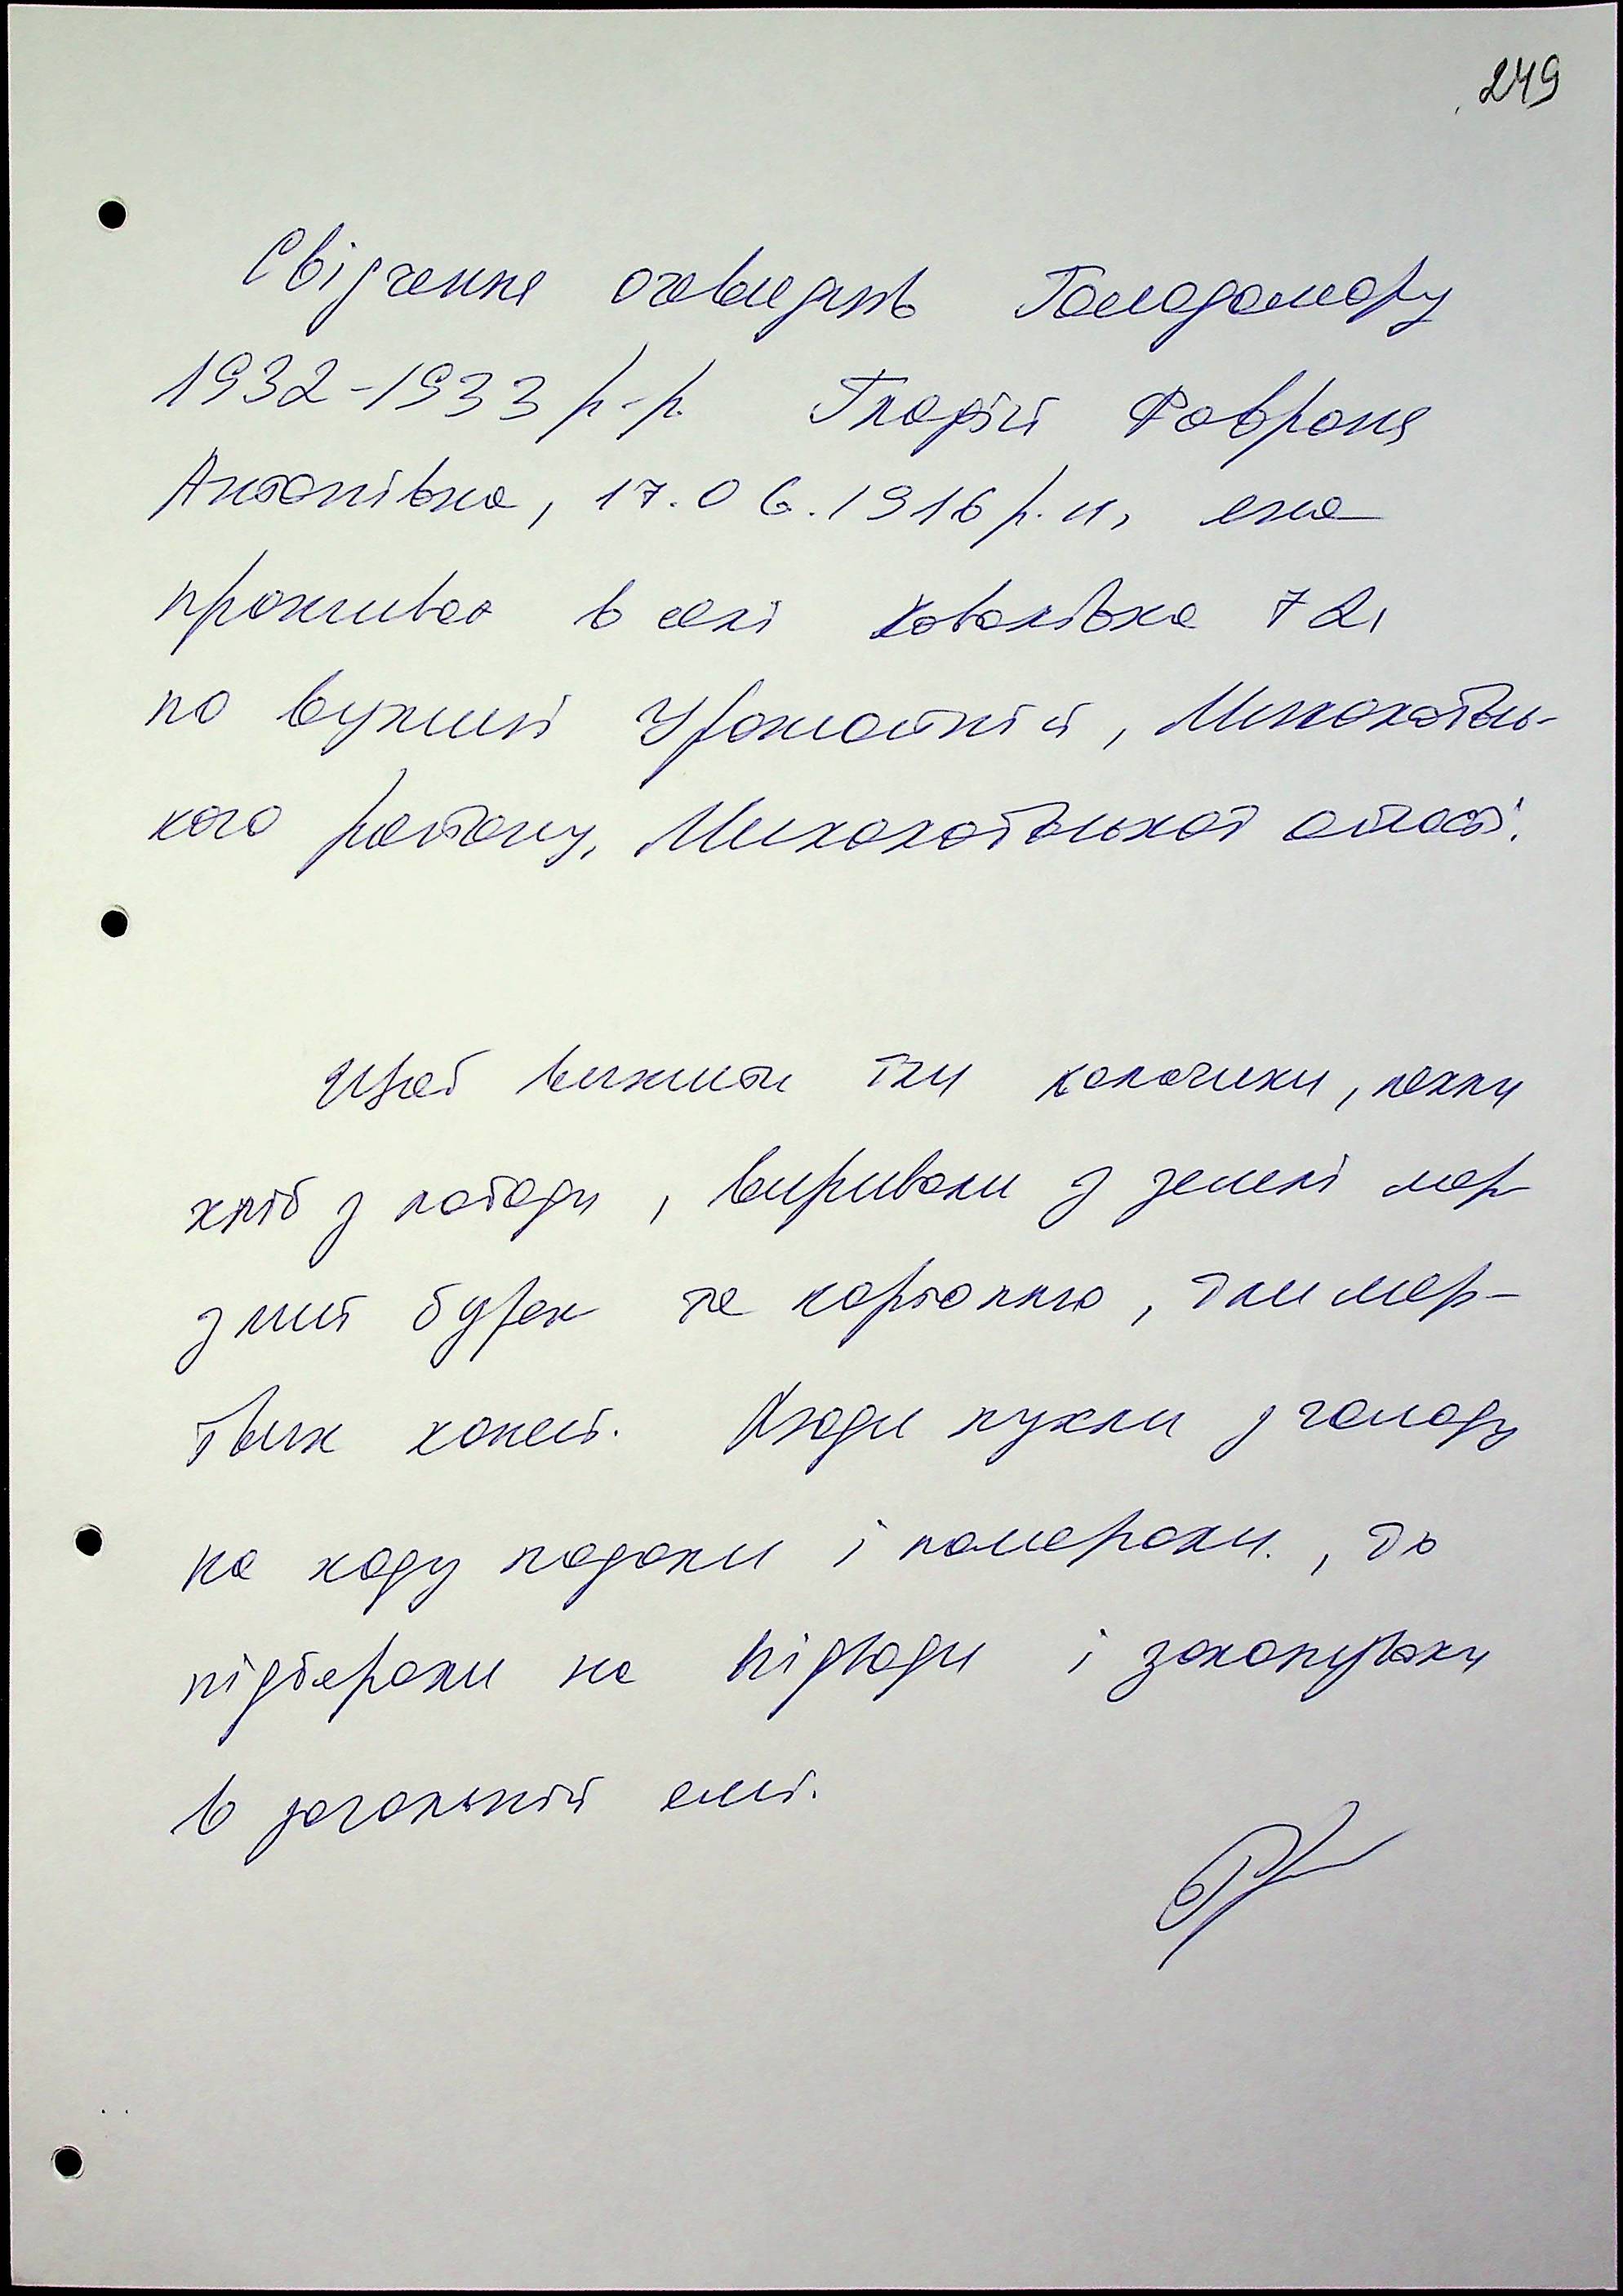 249
Свідчення очевидців Голодомору
1932-1933 р-р. Гладій Февронія
Антонівна, 17.06.1916 р.н, яка
проживає в селі Ковалівка 72,
по вулиці Урожайній, Миколаївсь-
кого району, Миколаївської області.
Щоб вижити їли калачики, пекли
хліб з лободи, виривали з землі мер
злий буряк та картоплю, їли мер-
твих коней. Люди пухли з голоду
на ходу падали і помирали., їх
підбирали на підводи і закопували
в загальній ямі.